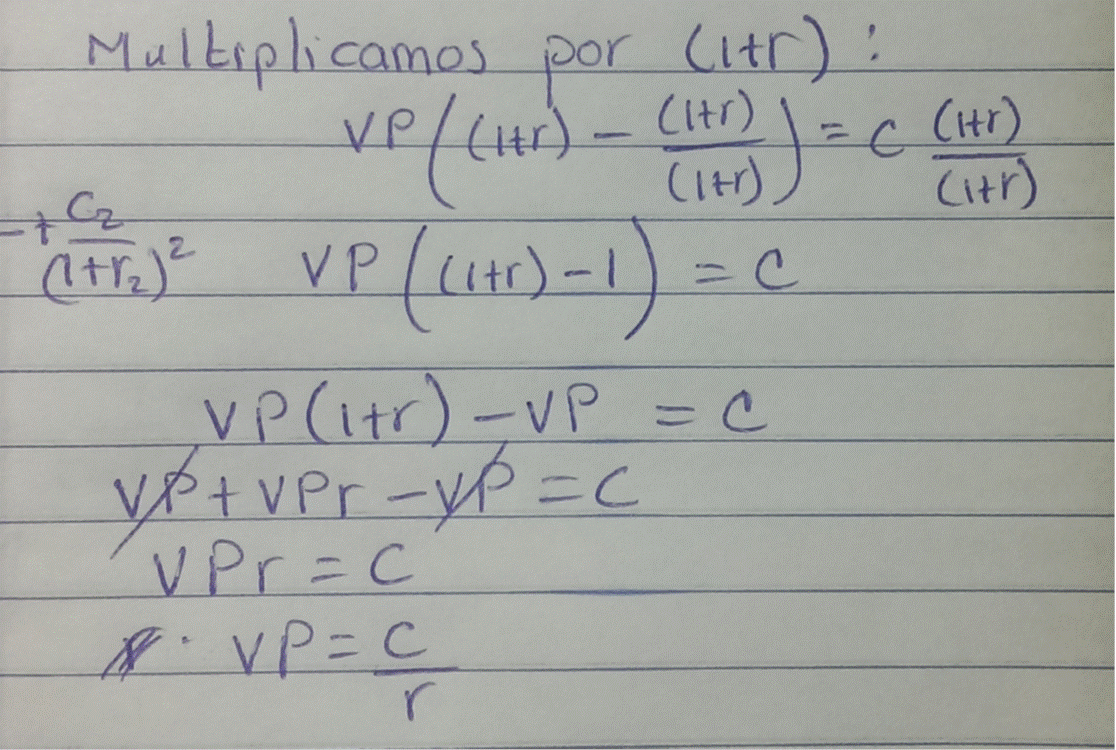 Multiplicamos por (1+r) :
VP((1+r) - (1+r)/(1+r)) = C (1+r)/(1+r)
-+ C₂/(1+r₂)²
VP((1+r)-1) = C
VP(1+r) - VP = C
VP + VPr - VP = C
VPr = C
VP = C/r